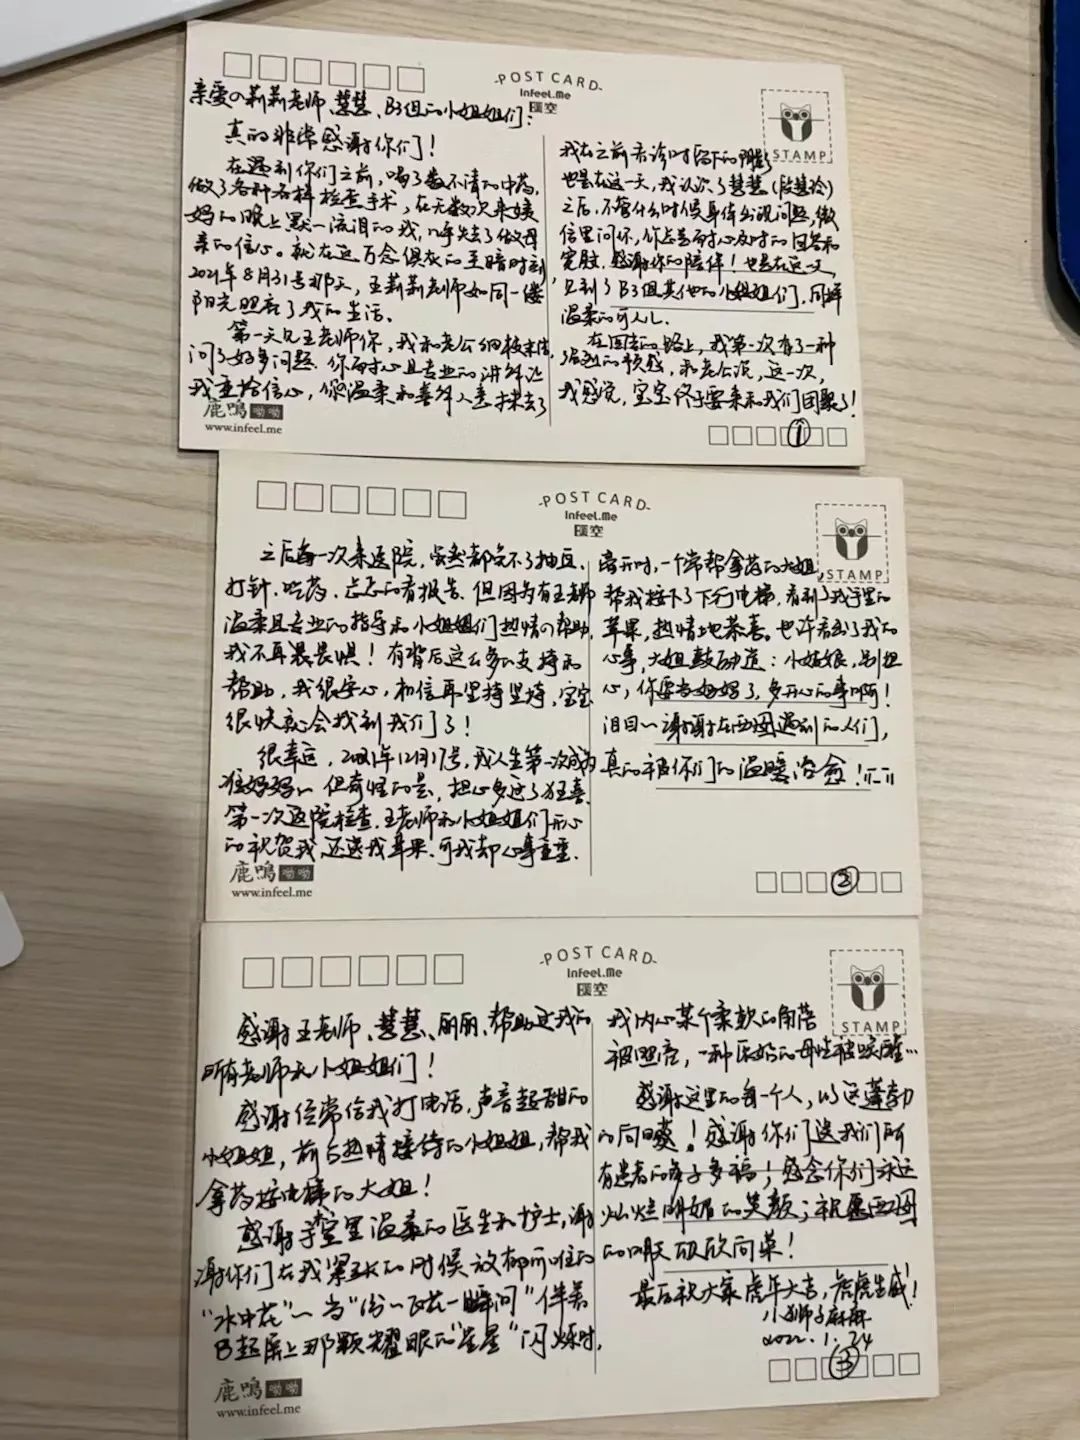 POST CARD
InFeel.Me
匡空
STAMP
亲爱の莉莉老师、慧慧、B3组的小姐姐们:
真的非常感谢你们!
在遇到你们之前,喝了数不清的中药,
做了各种各样检查手术,在无数次来姨
妈的晚上默一流泪的我,几乎失去了做母
亲的信心。就在这万念俱灰的至暗时刻,
2021年8月31号那天,王莉莉老师如同一缕
阳光照亮了我的生活。
第一天见王老师你,我和老公细枝末节
问了好多问题.你耐心且专业的讲解让
我重拾信心,你温柔和善解人意抹去了
我在之前看诊时留下的阴影
也是在这一天,我认识了慧慧
之后,不管什么时候身体出现问题,微
信里问你,你总是耐心及时的回答和
宽慰.感谢你的陪伴!也是在这一天,
见到了B3组其他的小姐姐们,同样
温柔的可人儿.
在回去的路上,我第一次有了一种
强烈的预感,和老公说,这一次,
我感觉,宝宝终于要来和我们团聚了!
鹿鳴 呦呦
www.infeel.me
①
POST CARD
InFeel.Me
匡空
STAMP
之后每一次来医院,虽然都免不了抽血、
打针、吃药、忐忑的看报告.但因为有王老师
温柔且专业的指导和小姐姐们热情の帮助,
我不再畏惧!有背后这么多的支持和
帮助,我很安心,相信再坚持坚持,宝宝
很快就会找到我们了!
很幸运,2021年12月17号,我人生第一次成为
准妈妈.但奇怪的是,担心多过了狂喜.
第一次返院检查.王老师和小姐姐们开心
的祝贺我,还送我苹果.可我却心事重重.
离开时,一个常帮拿药的大姐,
帮我按下了下行电梯,看到了我手里的
苹果,热情地恭喜。也许看出了我的
心事,大姐鼓励道:小姑娘,别担
心,你要当妈妈了,多开心的事啊!
泪目~谢谢在西囡遇到的人们,
真的被你们的温暖治愈!
鹿鳴 呦呦
www.infeel.me
②
POST CARD
InFeel.Me
匡空
STAMP
感谢王老师、慧慧、丽丽、帮助过我的
所有老师和小姐姐们!
感谢经常给我打电话,声音超甜的
小姐姐,前台热情接待的小姐姐,帮我
拿药按电梯的大姐!
感谢手术室里温柔的医生和护士,谢
谢你们在我紧张的时候放郁可唯的
“水中花”~当“纷一飞花一瞬间”伴着
B超屏上那颗耀眼的“星星”闪烁时,
我内心某个柔软的角落
被照亮,一种原始的母性被唤醒…
感谢这里的每一个人,以这蓬勃
的向暖!感谢你们送我们所
有患者的多子多福;感念你们永远
灿烂明媚的笑颜;祝愿西囡
的明天欣欣向荣!
最后祝大家虎年大吉,虎虎生威!
小狮子麻麻
2022.1.24
鹿鳴 呦呦
www.infeel.me
③